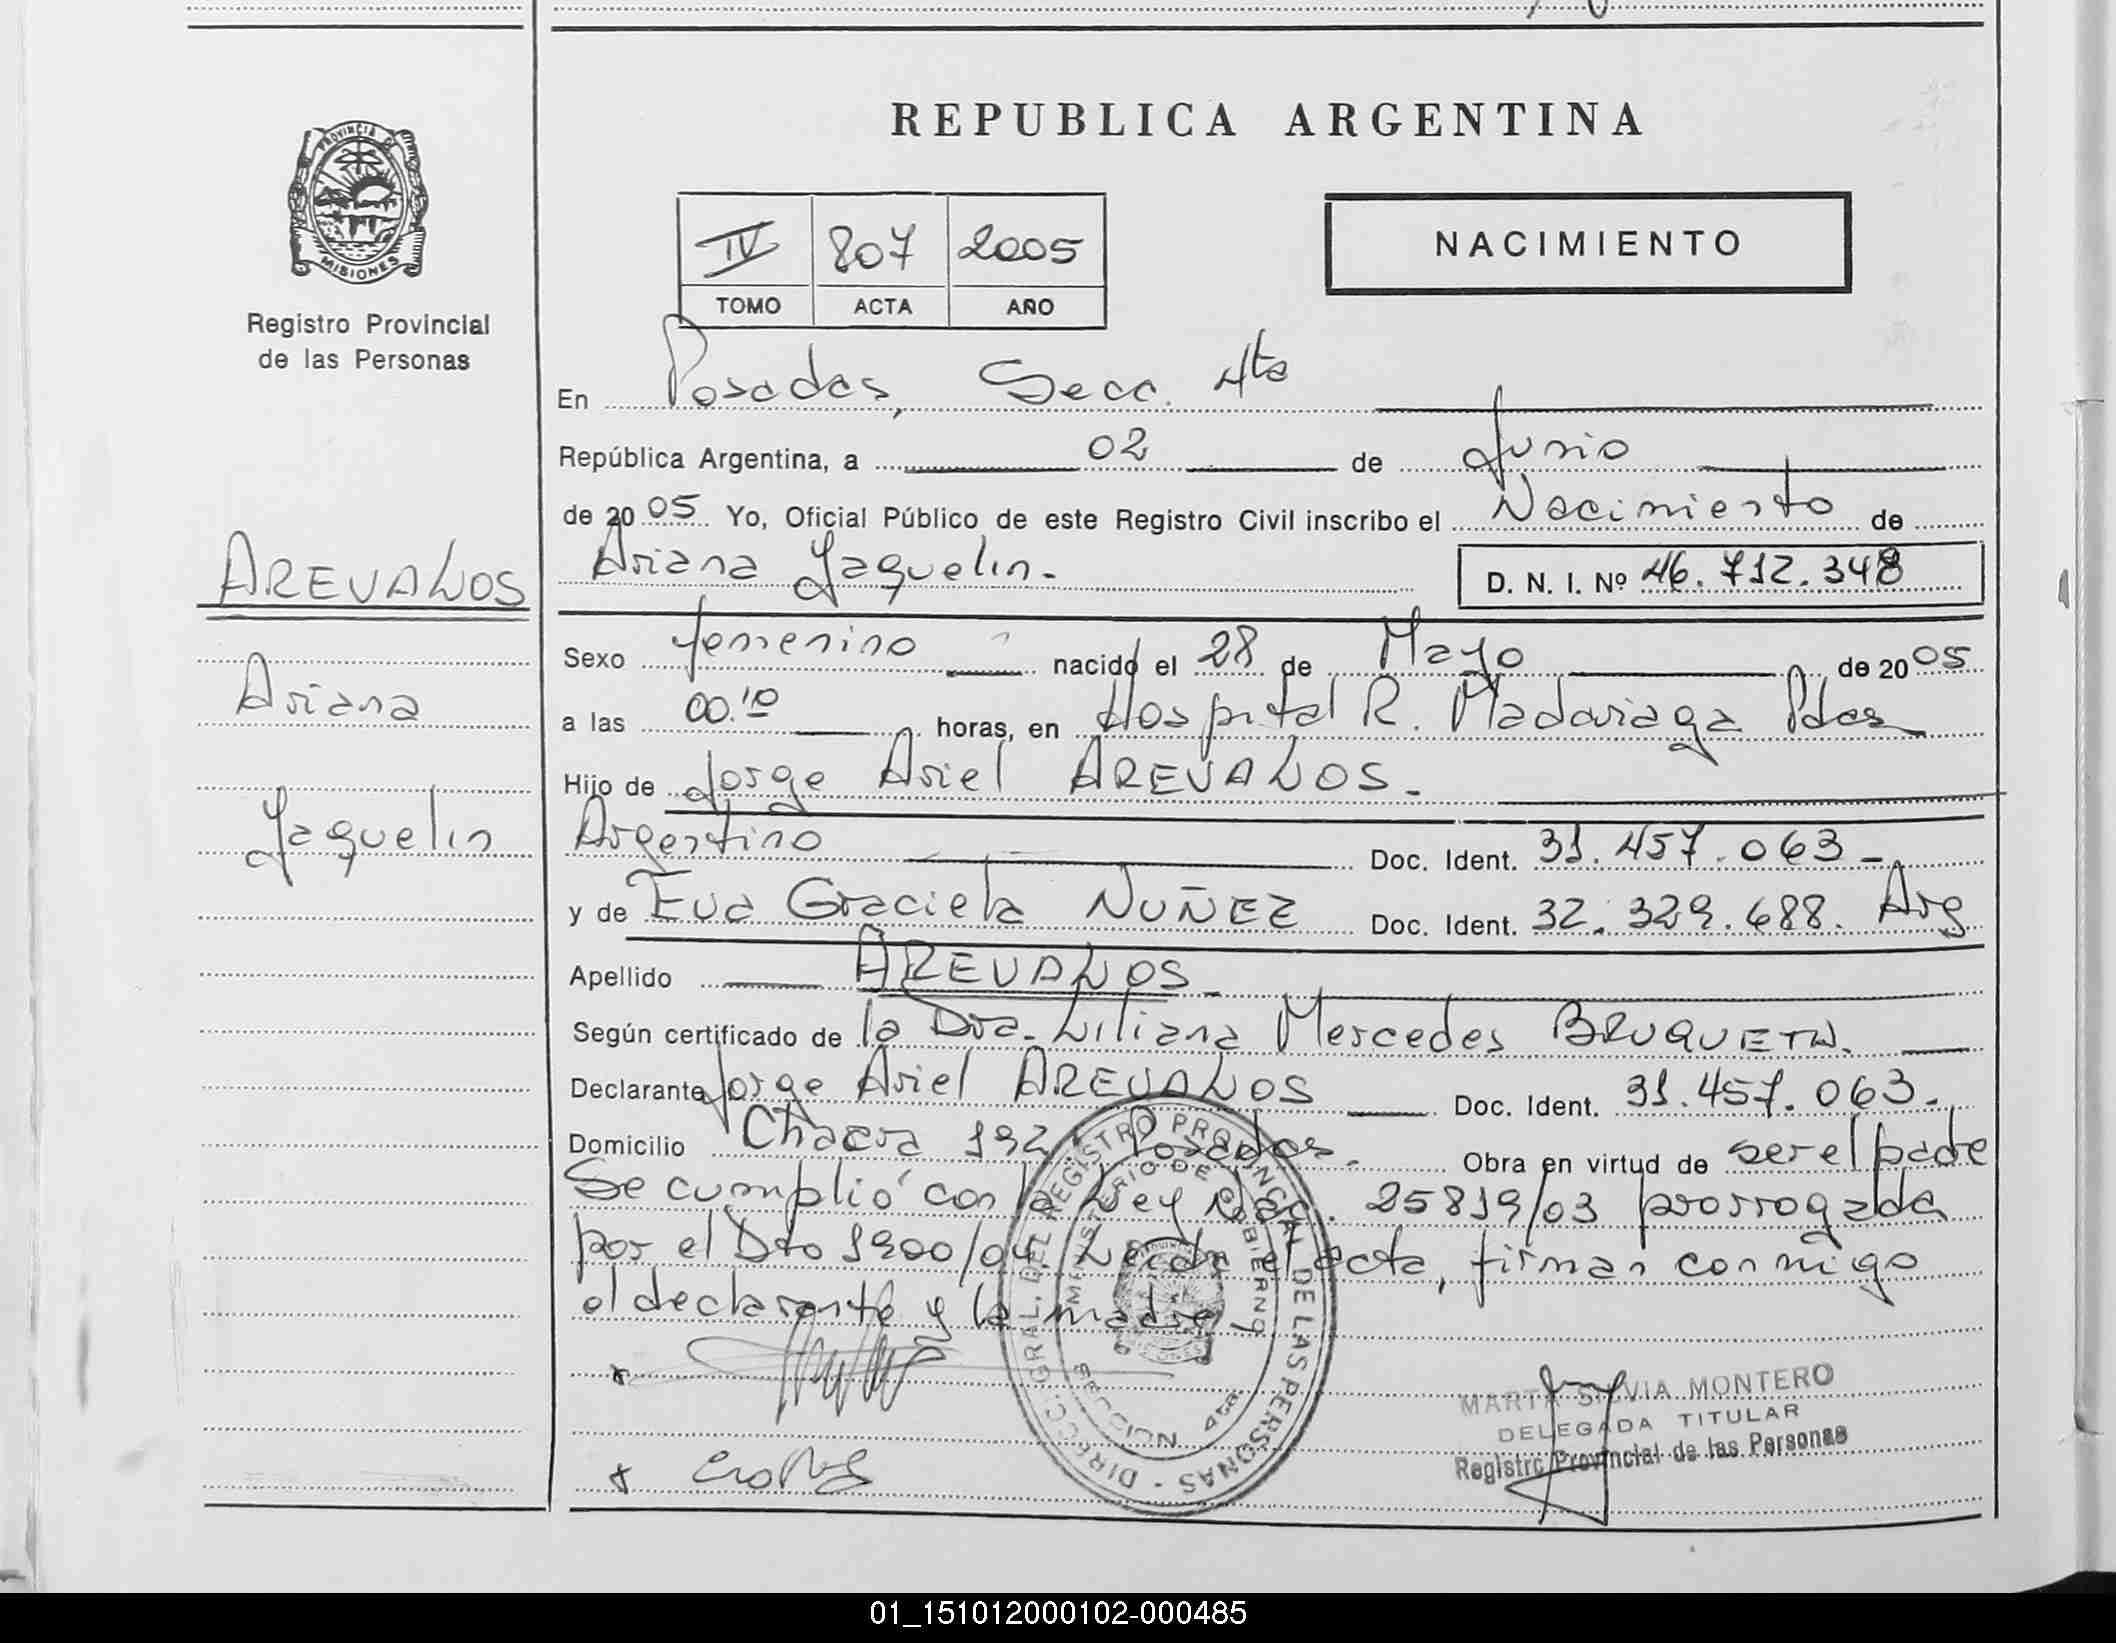 REPUBLICA ARGENTINA
PROVINCIA DE
MISIONES
Registro Provincial
de las Personas
IV 807 2005
TOMO ACTA AÑO
NACIMIENTO
En Posadas, Secc. 4ta
República Argentina, a 02 de Junio
de 2005 Yo, Oficial Público de este Registro Civil inscribo el Nacimiento de
Ariana Jaquelin.
D. N. I. Nº 46.712.348
AREVALOS
Ariana
Jaquelin
Sexo femenino nacido el 28 de Mayo de 2005
a las 00.10 horas, en Hospital R. Madariaga Pdas
Hijo de Jorge Ariel AREVALOS.
Argentino Doc. Ident. 31.457.063
y de Eva Graciela NUÑEZ Doc. Ident. 32.329.688. Arg
Apellido AREVALOS
Según certificado de la Dra. Liliana Mercedes BRUQUETA.
Declarante Jorge Ariel AREVALOS Doc. Ident. 31.457.063.
Domicilio Chacra 192 Posadas. Obra en virtud de ser el padre
Se cumplió con la Ley Nac. 25819/03 prorrogada
por el Dto 1900/04. Leida el acta, firman conmigo
el declarante y la madre
DIRECC. GRAL. DEL REGISTRO PROVINCIAL DE LAS PERSONAS
MINISTERIO DE GOBIERNO
SECCION 4ta.
MARTA SILVIA MONTERO
DELEGADA TITULAR
Registro Provincial de las Personas
01_151012000102-000485